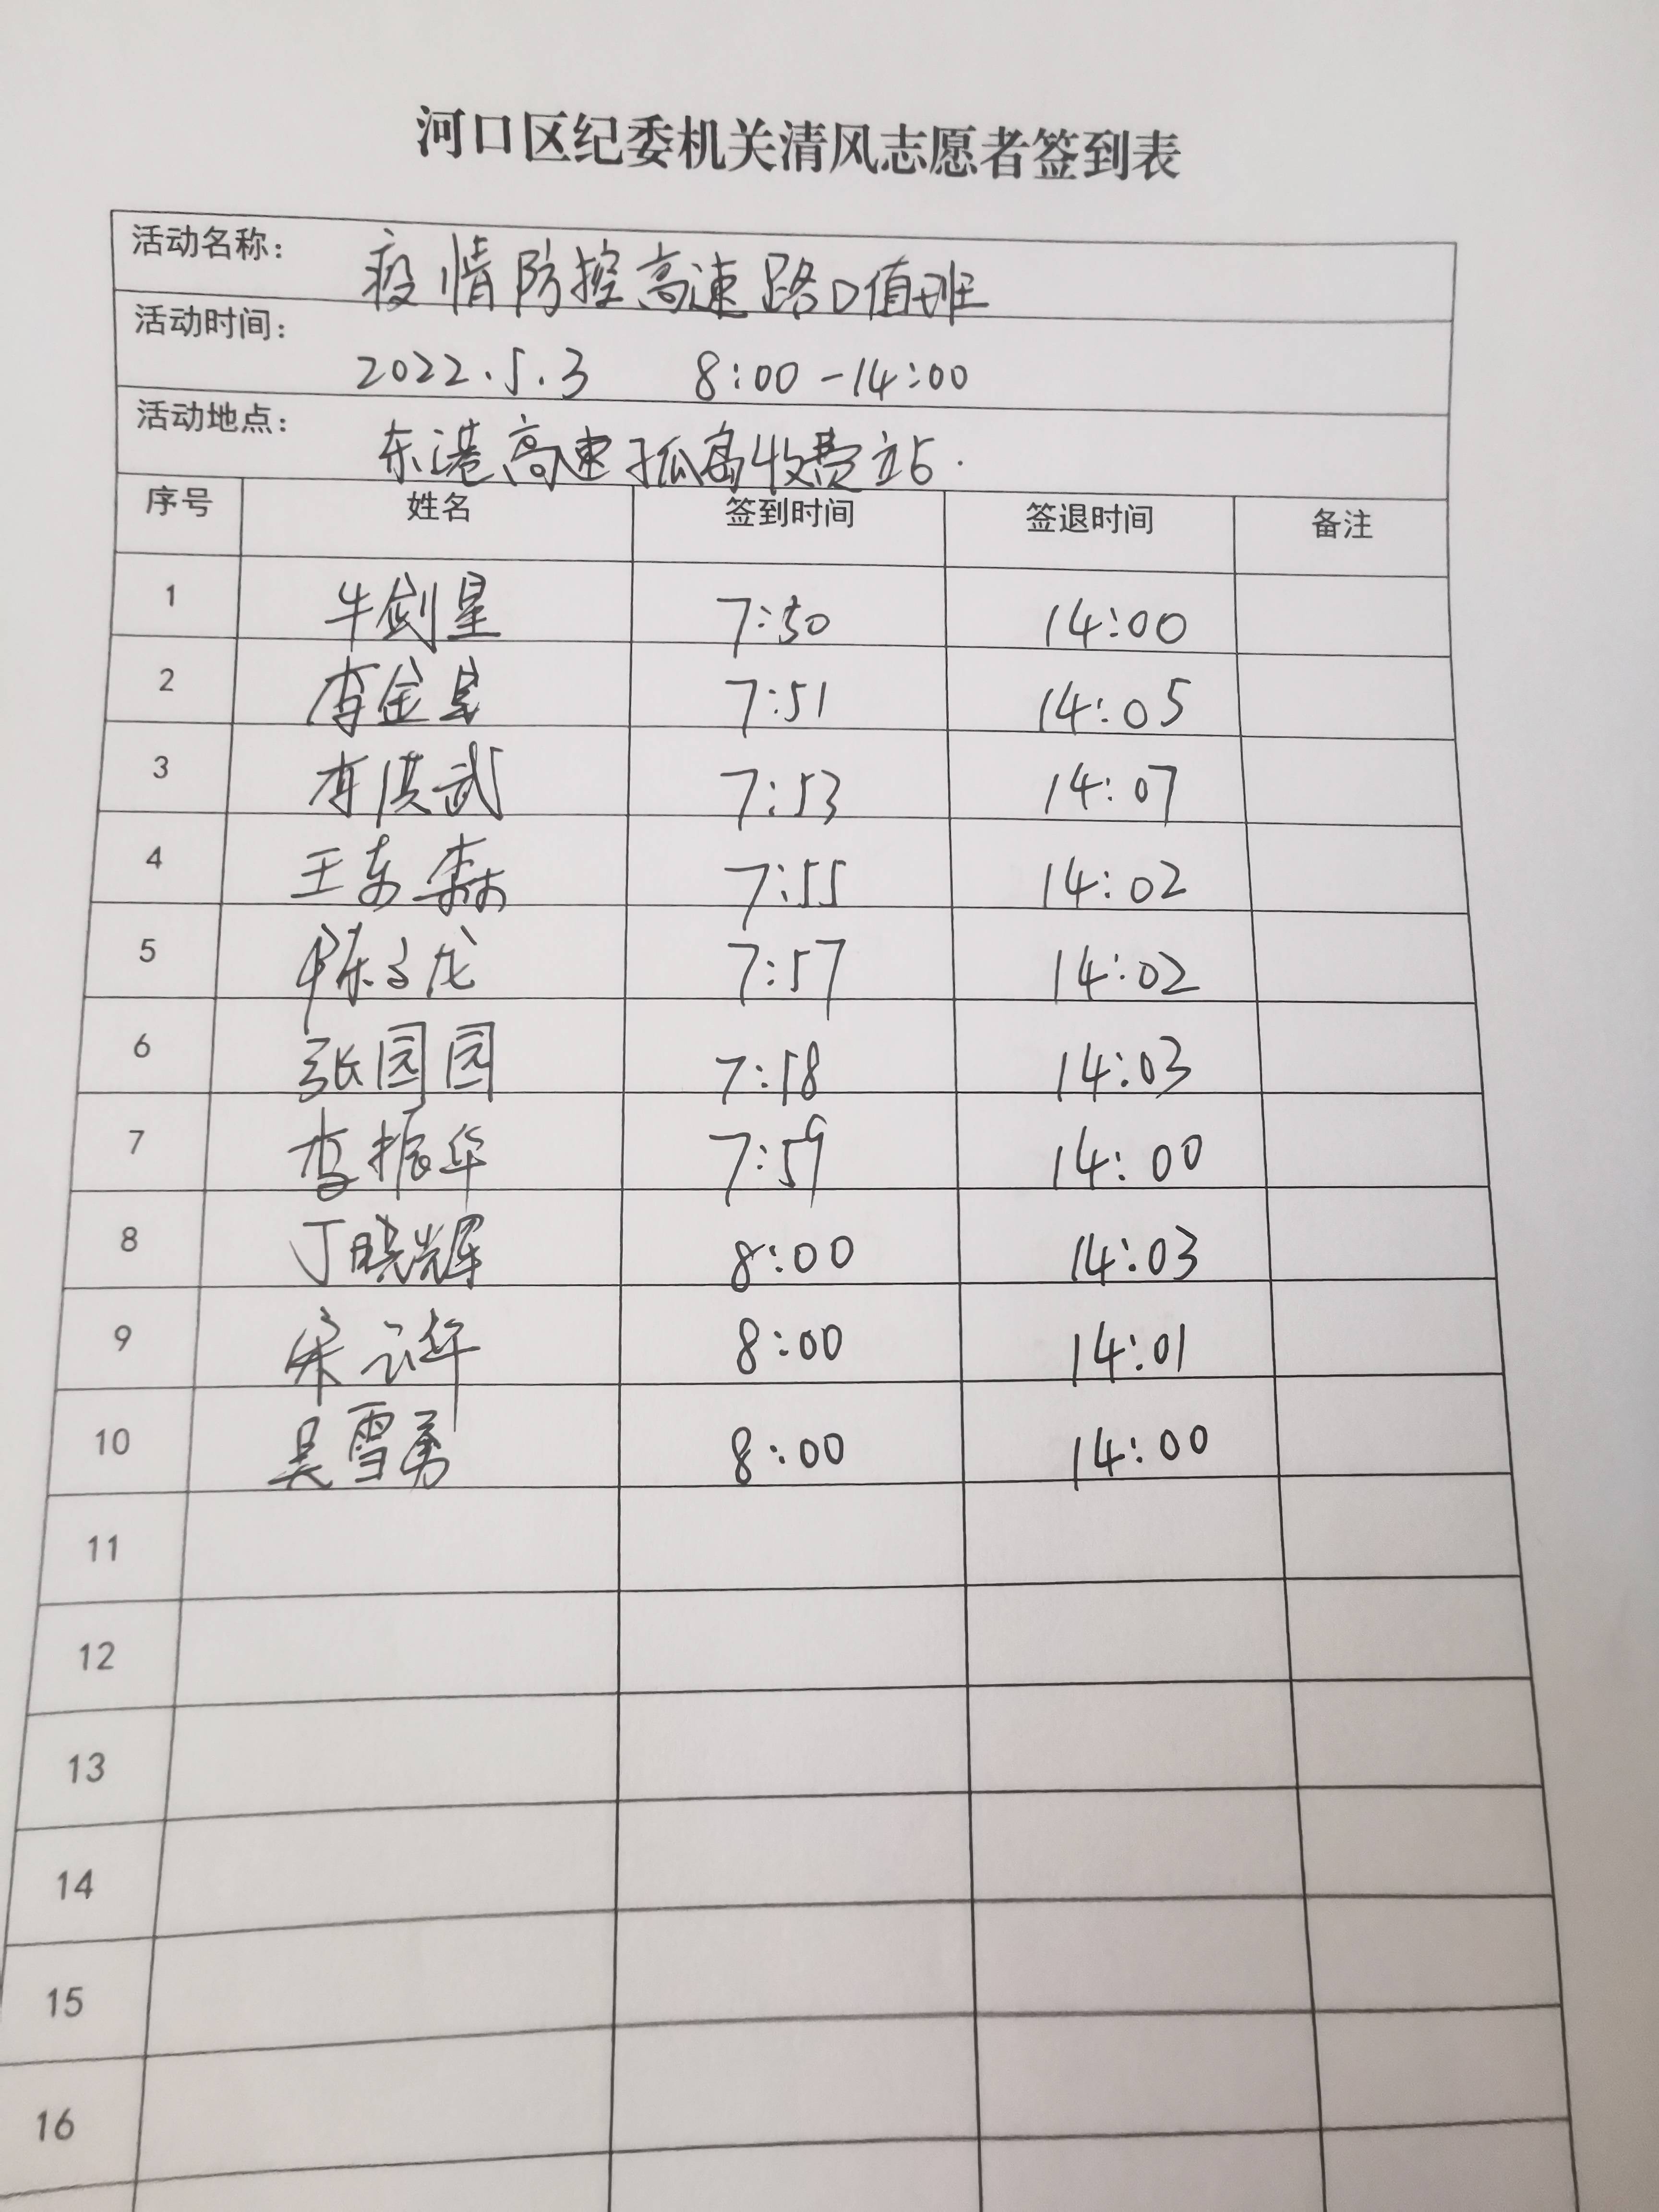 河口区纪委机关清风志愿者签到表
活动名称： 疫情防控高速路口值班
活动时间： 2022.5.3 8:00-14:00
活动地点： 东港高速孤岛收费站.
序号 姓名 签到时间 签退时间 备注
1 牛剑星 7:50 14:00
2 李金星 7:51 14:05
3 李洪武 7:53 14:07
4 王东森 7:55 14:02
5 陈子龙 7:57 14:02
6 张园园 7:58 14:03
7 李振华 7:59 14:00
8 丁晓辉 8:00 14:03
9 宋云华 8:00 14:01
10 吴雪勇 8:00 14:00
11
12
13
14
15
16